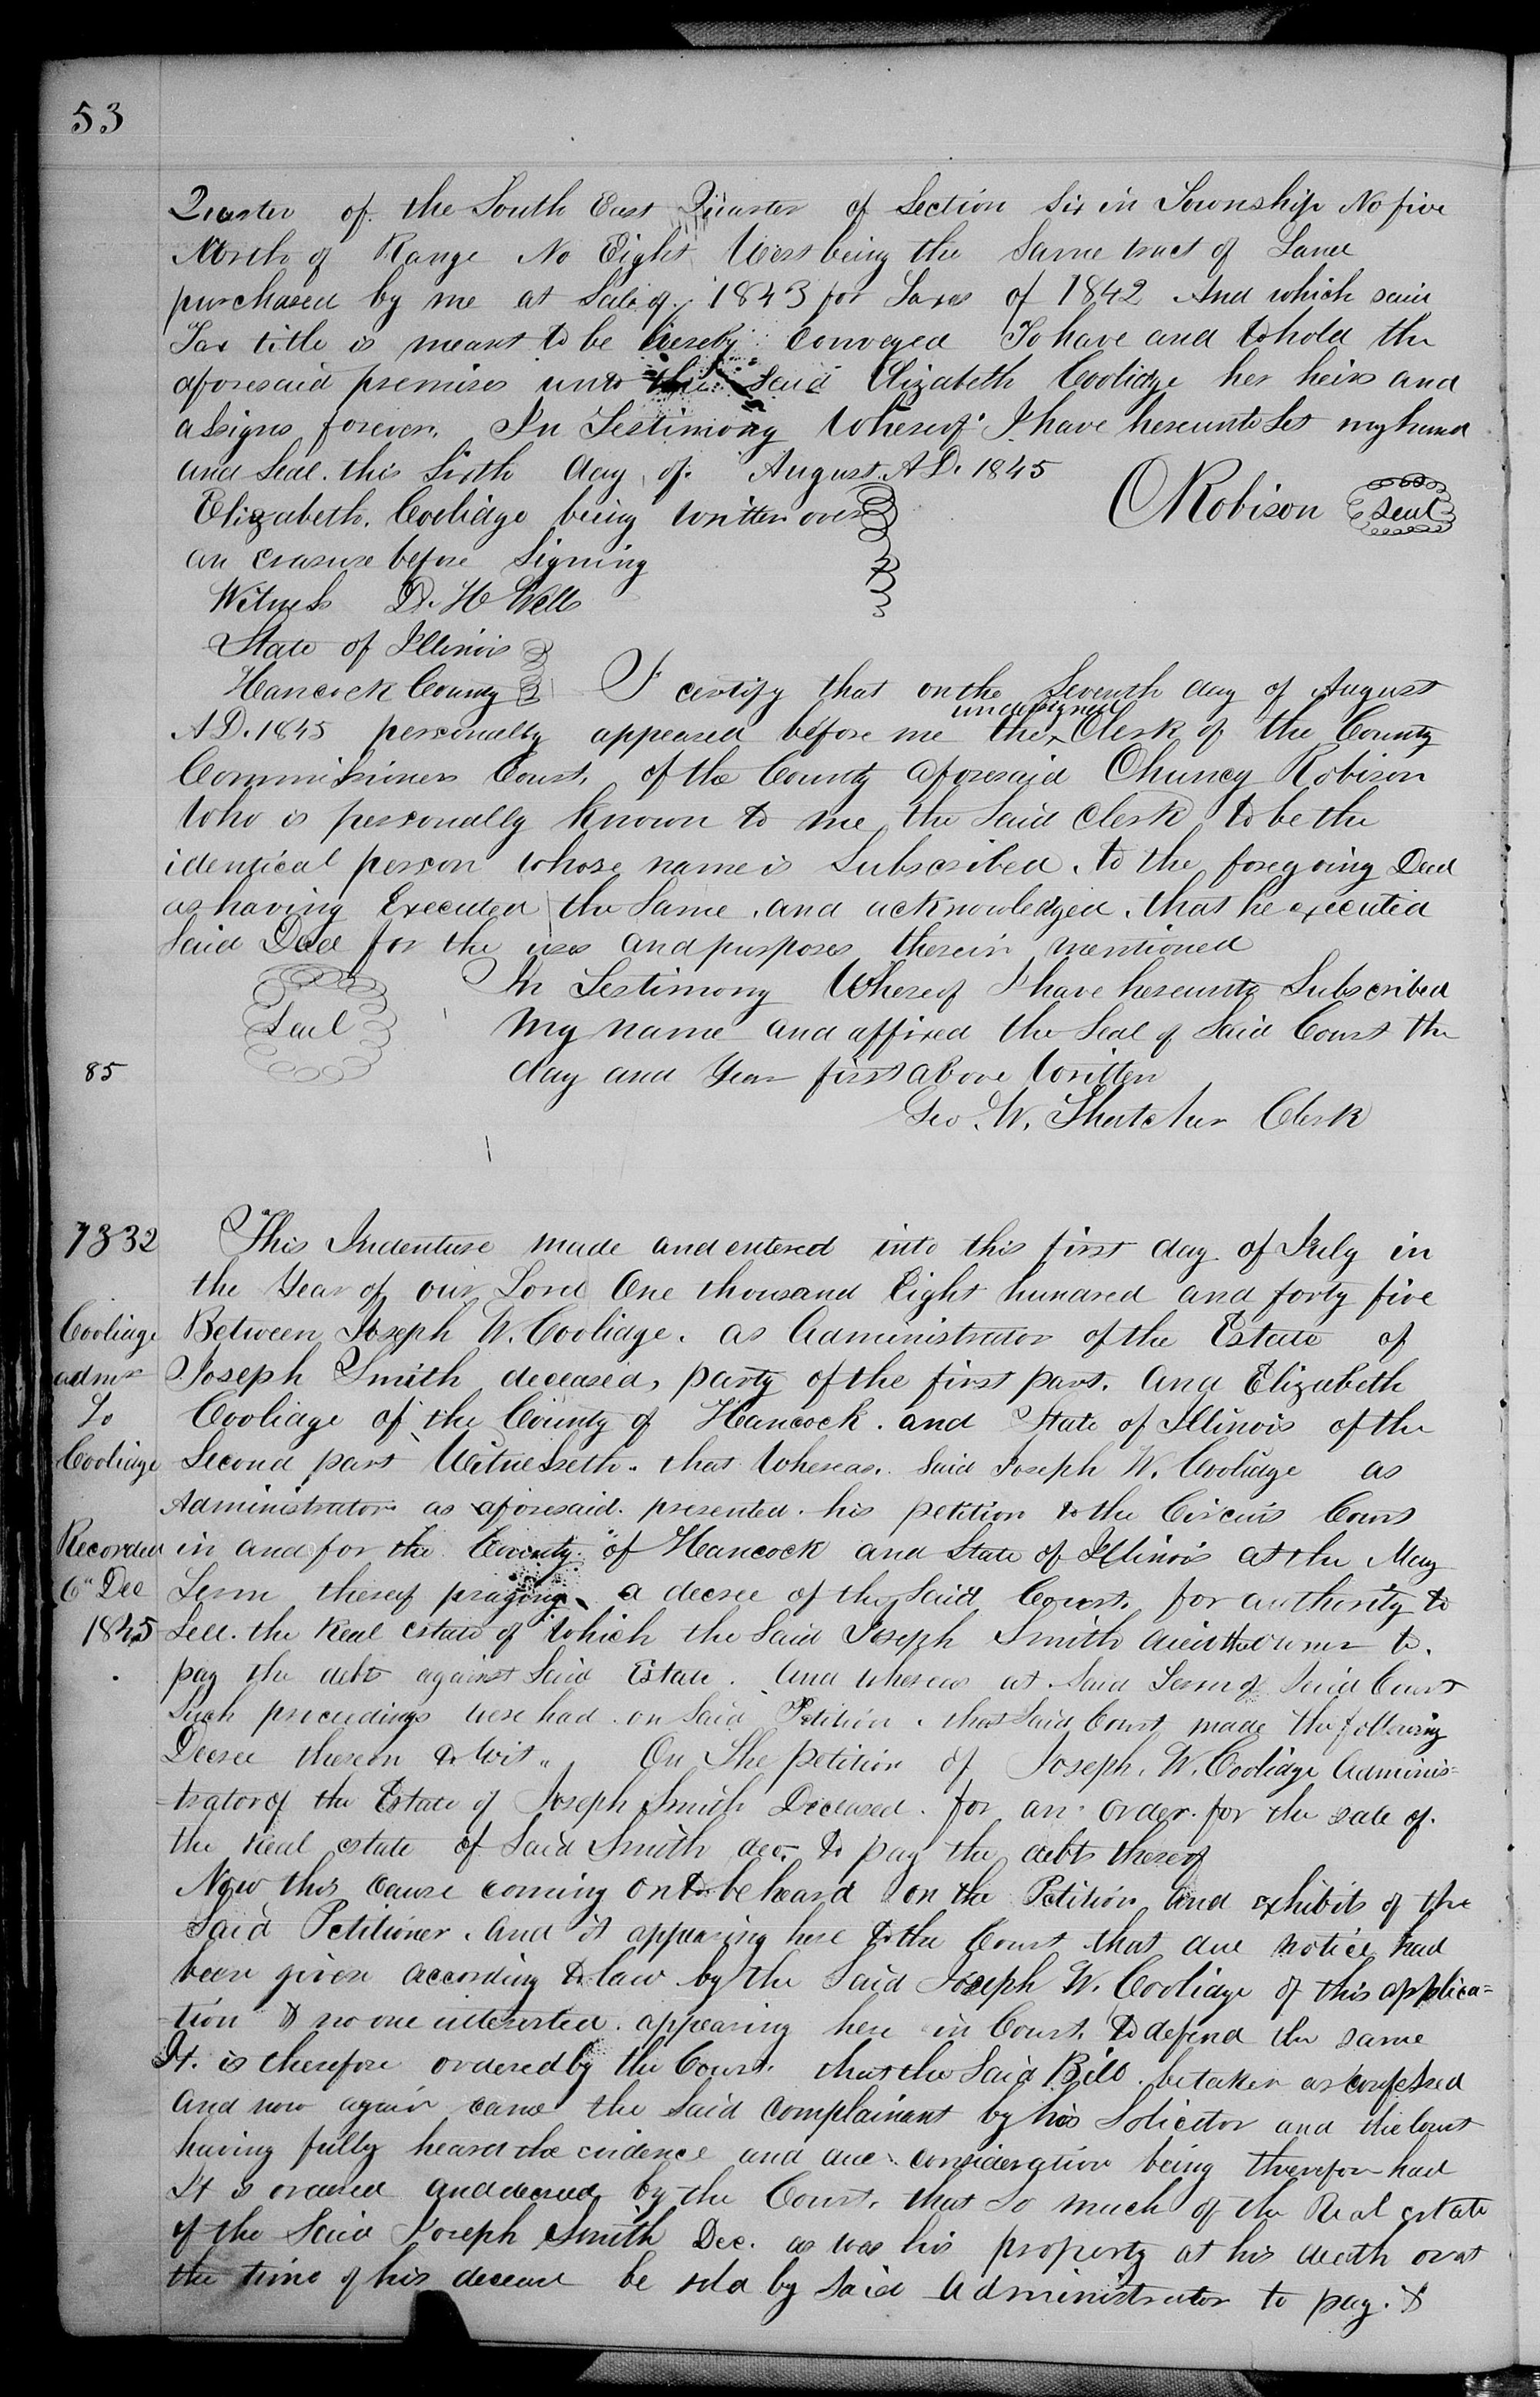 53
Quarter of the South East Quarter of Section Six in Township No five
North of Range No Eight West being the Same tract of Land
purchased by me at Sale of 1843 for Taxes of 1842 And which said
Tax title is meant to be hereby Conveyed To have and to hold the
aforesaid premises unto the said Elizabeth Coolidge her heirs and
assigns forever. In Testimony Whereof I have hereunto Set my hand
and Seal this Sixth day of August A.D. 1845
Elizabeth Coolidge being written over
C Robison Seal
an erasure before Signing
Witness D. H Wells
State of Illinois
Hancock County I certify that on the Seventh day of August
undersigned
A D. 1845 personally appeared before me the Clerk of the County
Commissioners Court, of the County aforesaid Chuncy Robison
Who is personally Known to me the Said Clerk to be the
identical person whose name is Subscribed to the foregoing Deed
as having Executed the Same and acknowledged that he executed
Said Deed for the uses and purposes therein mentioned
In Testimony Whereof I have hereunto Subscribed
Seal my name and affixed the Seal of Said Court the
85 day and Year first above Written
Geo. W. Thatcher Clerk
1332 This Indenture made and entered into this first day of July in
the Year of our Lord One thousand Eight hundred and forty five
Coolidge Between Joseph W. Coolidge. as Administrator of the Estate of
admr Joseph Smith deceased, party of the first part. And Elizabeth
To Coolidge of the County of Hancock. and State of Illinois of the
Coolidge Second part Witnesseth. that Whereas. Said Joseph W. Coolidge as
Administrator as aforesaid. presented his petition to the Circuit Court
Recorded in and for the County of Hancock and State of Illinois at the May
6" Dec Term thereof praying a decree of the Said Court, for authority to
1845 Sell. the Real Estate of Which the Said Joseph Smith died the owner to
pay the debts against Said Estate. And whereas at Said Term of Said Court
Such proceedings were had on Said Petition. that Said Court made the following
Decree therein to Wit " On The petition of Joseph. W. Coolidge Adminis=
=trator of the Estate of Joseph Smith Deceased. for an order for the sale of
the Real estate of Said Smith dec. to pay the debts thereof
Now this cause coming on to be heard on the Petition and exhibits of the
Said Petitioner. And it appearing here to the Court that due notice had
been given according to law by the Said Joseph W. Coolidge of this applica=
=tion & no one interested appearing here in Court, to defend the same
It is therefore ordered by the Court. that the Said Bill be taken as confessed
And now again came the Said Complainant by his Solicitor and the Court
having fully heard the evidence and due consideration being therefor had
It is ordered and decreed by the Court, that So much of the Real estate
of the Said Joseph Smith Dec. as was his property at his death or at
the time of his decease be sold by Said Administrator to pay. &